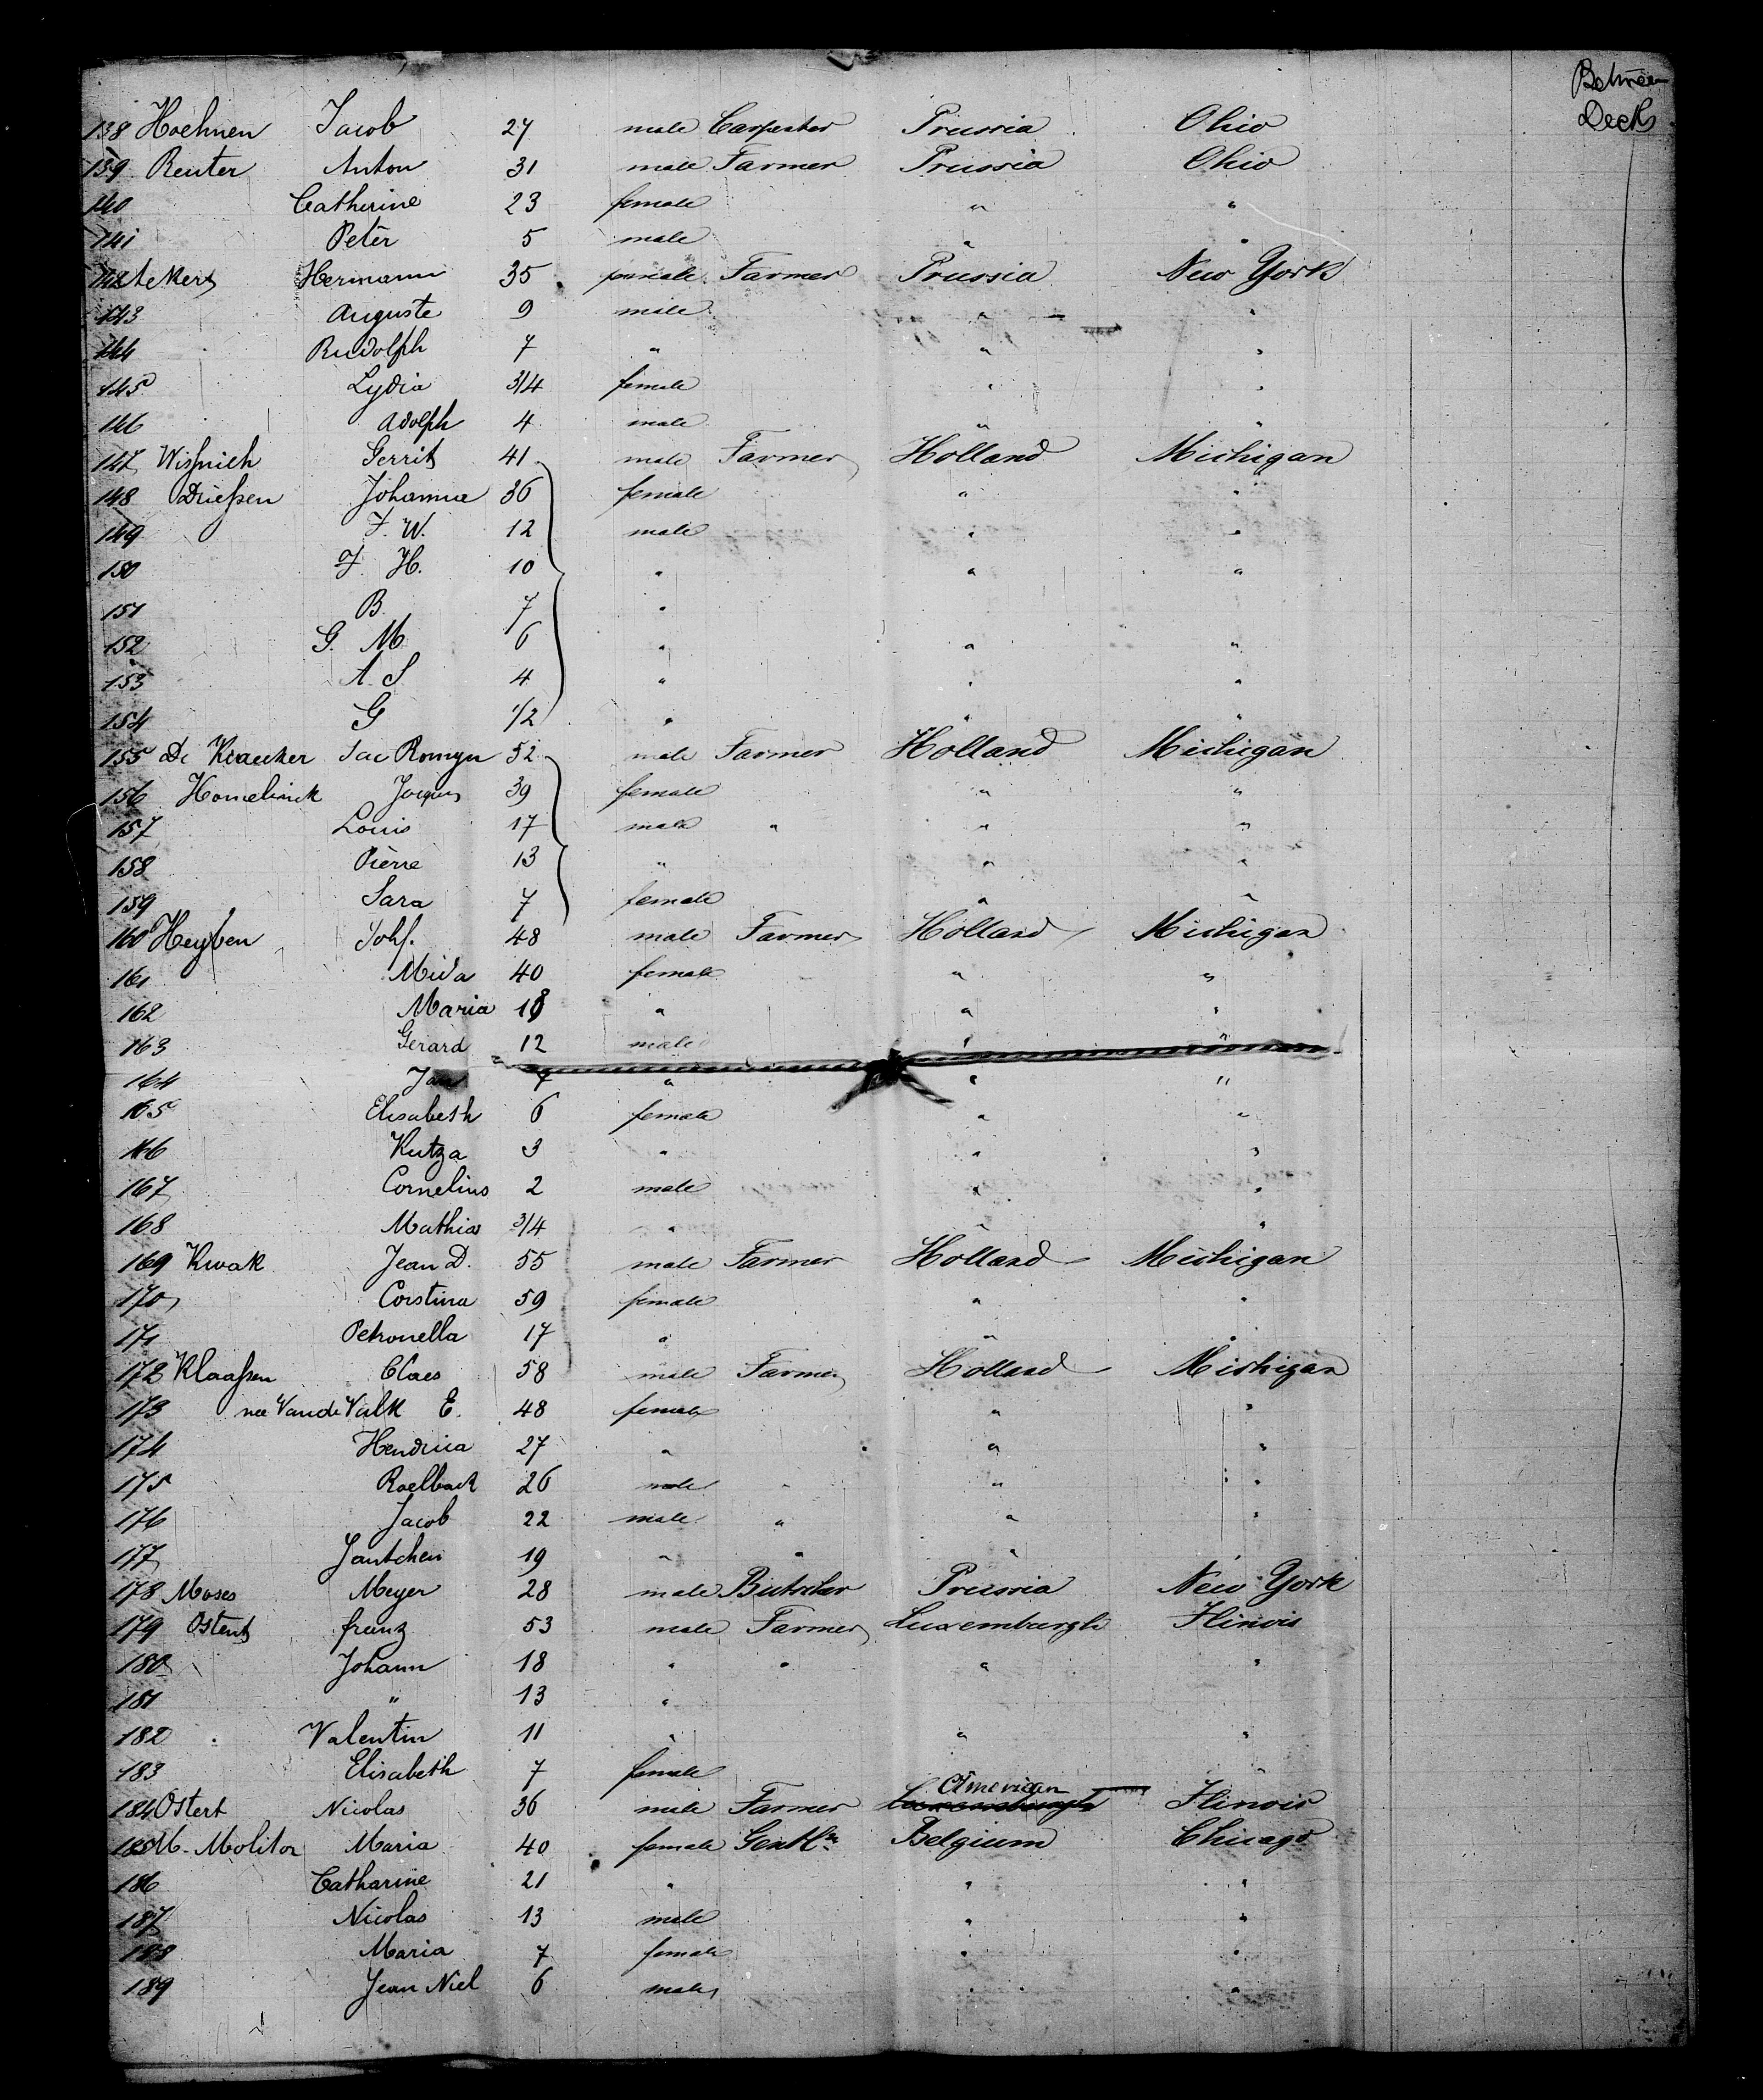 Between
Deck
138 Hoehnen Jacob 27 male Carpenter Prussia Ohio
139 Reuter Anton 31 male Farmer Prussia Ohio
140 Catherine 23 female " "
141 Peter 5 male " "
142 Hermann 35 Farmer Prussia New York
143 Auguste 9 male " "
144 Rudolph 7 " " "
145 Lydia 3/4 female " "
146 Adolph 4 male " "
147 Gerrit 41 male Farmer Holland Michigan
148 Drießen Johanna 36 female " "
149 F. W. 12 male " "
150 F. H. 10 " " "
151 B 7 "
152 G. M 6 " " "
153 A. S 4 " " "
154 G 1/2 " " "
155 De Jac Romyn 52 male Farmer Holland Michigan
156 Homelinck 39 female " "
157 Louis 17 male " " "
158 Pierre 13 " " "
159 Sara 7 female " "
160 Heyben Johs. 48 male Farmer Holland Michigan
161 Mida 40 female " "
162 Maria 18 " " "
163 Gerard 12 male " "
164 " " "
165 Elisabeth 6 female " "
166 Kutza 3 " " "
167 Cornelius 2 male " "
168 Mathias 3/4 " " "
169 Kwak Jean D. 55 male Farmer Holland Michigan
170 Corstina 59 female " "
171 Petronella 17 " " "
172 Klaaßen Claes 58 male Farmer Holland Michigan
173 nee Van de Valk E. 48 female " "
174 Hendrica 27 " " "
175 Raelback 26 male " " "
176 Jacob 22 male " " "
177 Jantchen 19 " " "
178 Moses Meyer 28 male Butcher Prussia New York
179 Ostert franz 53 male Farmer Luxemburgh Ilinois
180 Johann 18 " " " "
181 " 13 "
182 Valentin 11 " " "
183 Elisabeth 7 female " "
American
184 Ostert Nicolas 36 male Farmer Luxemburgh Ilinois
185 M. Molitor Maria 40 female Gentln Belgium Chicago
186 Catharine 21 " " "
187 Nicolas 13 male " "
188 Maria 7 female " "
189 Jean Niel 6 male " "